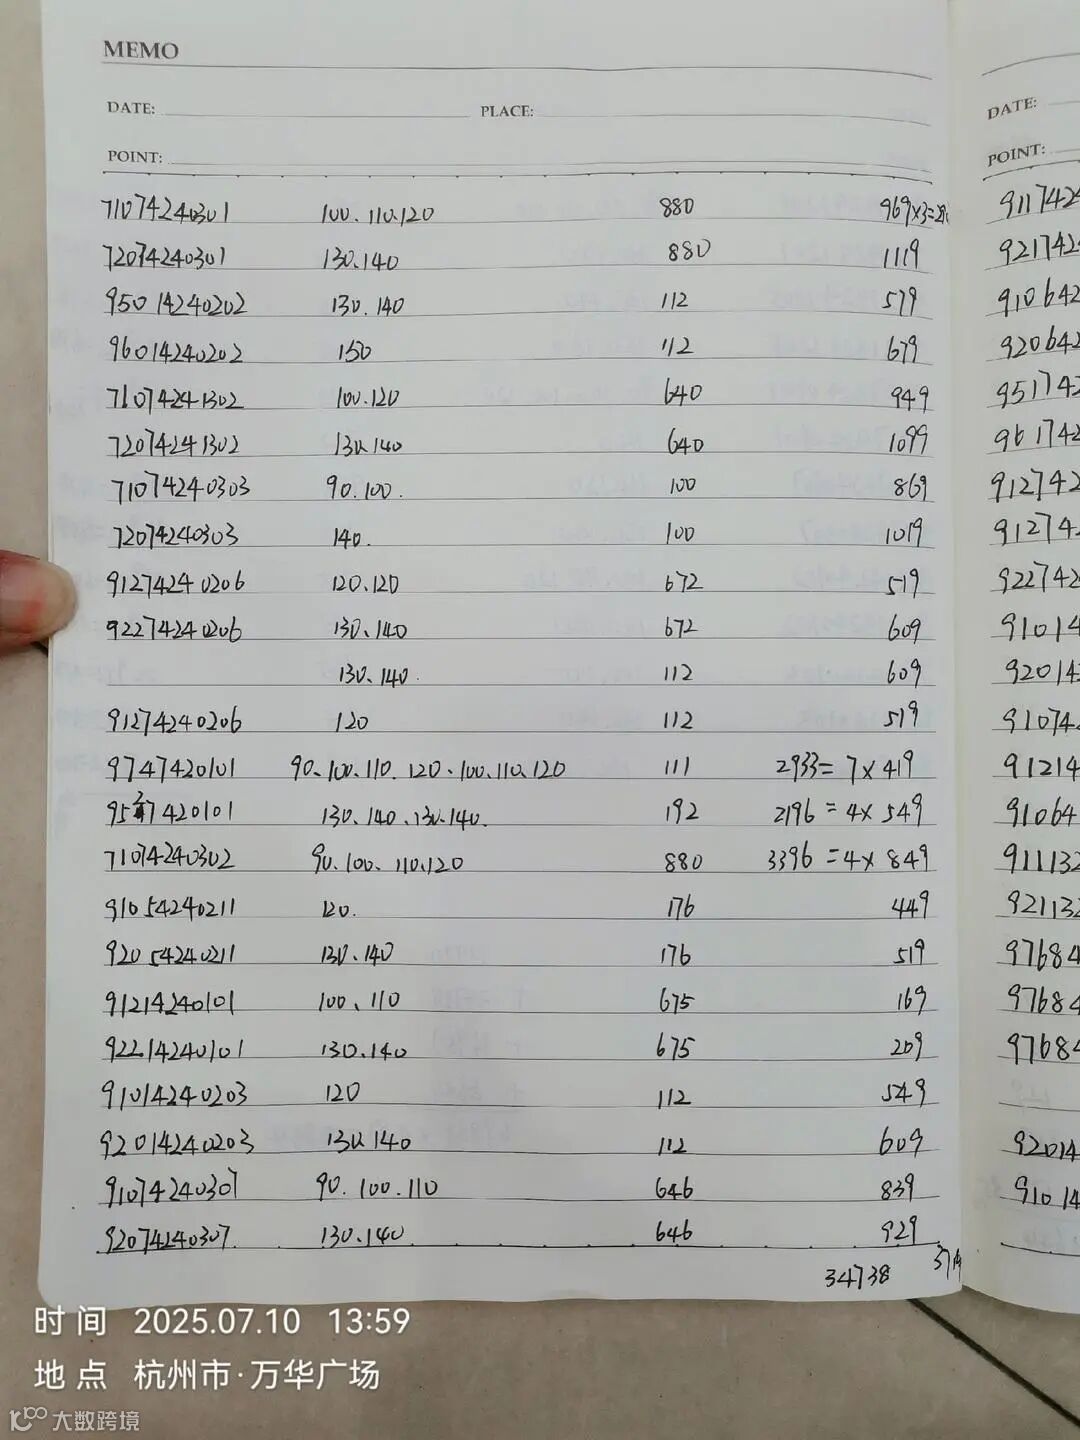 MEMO
DATE: PLACE:
POINT:
71074240301 100.110.120 880 969×3=
72074240301 130.140 880 1119
95014240202 130.140 112 579
96014240202 150 112 679
71074241302 100.120 640 949
72074241302 130.140 640 1099
71074240303 90.100. 100 869
72074240303 140. 100 1019
91274240206 120.120 672 519
92274240206 130.140 672 609
130.140. 112 609
91274240206 120 112 519
9747420101 90.100.110.120.100.110.120 111 2933=7×419
130.140.130.140. 192 2196=4×549
71074240302 90.100.110.120 880 3396=4×849
91054240211 120. 176 449
92054240211 130.140 176 519
91214240101 100.110 675 169
92214240101 130.140 675 209
91014240203 120 112 549
92014240203 130.140 112 609
91074240307 90.100.110 646 839
92074240307. 130.140 646 929
34738
DATE:
POINT:
911742
921742
910642
920642
951742
961742
912742
91274
922742
91014
92014
91074
91214
91064
911132
921132
97684
97684
97684
92014
91014
时间 2025.07.10 13:59
地点 杭州市·万华广场
大数跨境